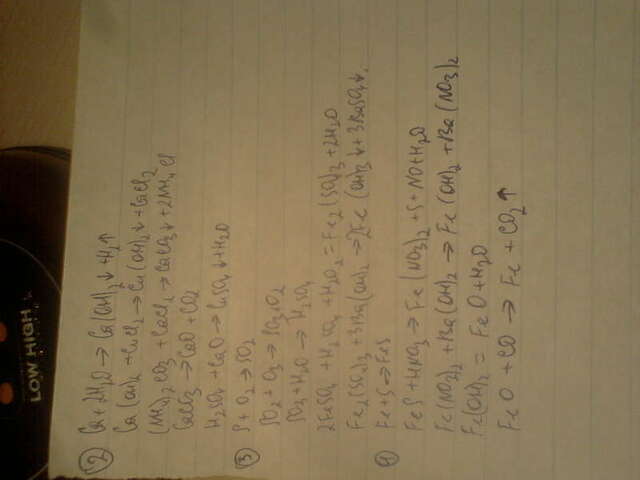 ② Ca + 2H₂O → Ca(OH)₂↓ + H₂↑
Ca(OH)₂ + CuCl₂ → Cu(OH)₂↓ + CaCl₂
(NH₄)₂CO₃ + CaCl₂ → CaCO₃↓ + 2NH₄Cl
CaCO₃ → CaO + CO₂
H₂SO₄ + CaO → CaSO₄↓ + H₂O
③ S + O₂ → SO₂
SO₂ + O₃ → SO₃ + O₂
SO₃ + H₂O → H₂SO₄
2FeSO₄ + H₂SO₄ + H₂O₂ = Fe₂(SO₄)₃ + 2H₂O
Fe₂(SO₄)₃ + 3Ba(OH)₂ → 2Fe(OH)₃↓ + 3BaSO₄↓
④ Fe + S → FeS
FeS + HNO₃ → Fe(NO₃)₂ + S + NO + H₂O
Fe(NO₃)₂ + Ba(OH)₂ → Fe(OH)₂ + Ba(NO₃)₂
Fe(OH)₂ = FeO + H₂O
FeO + CO → Fe + CO₂↑
LOW HIGH